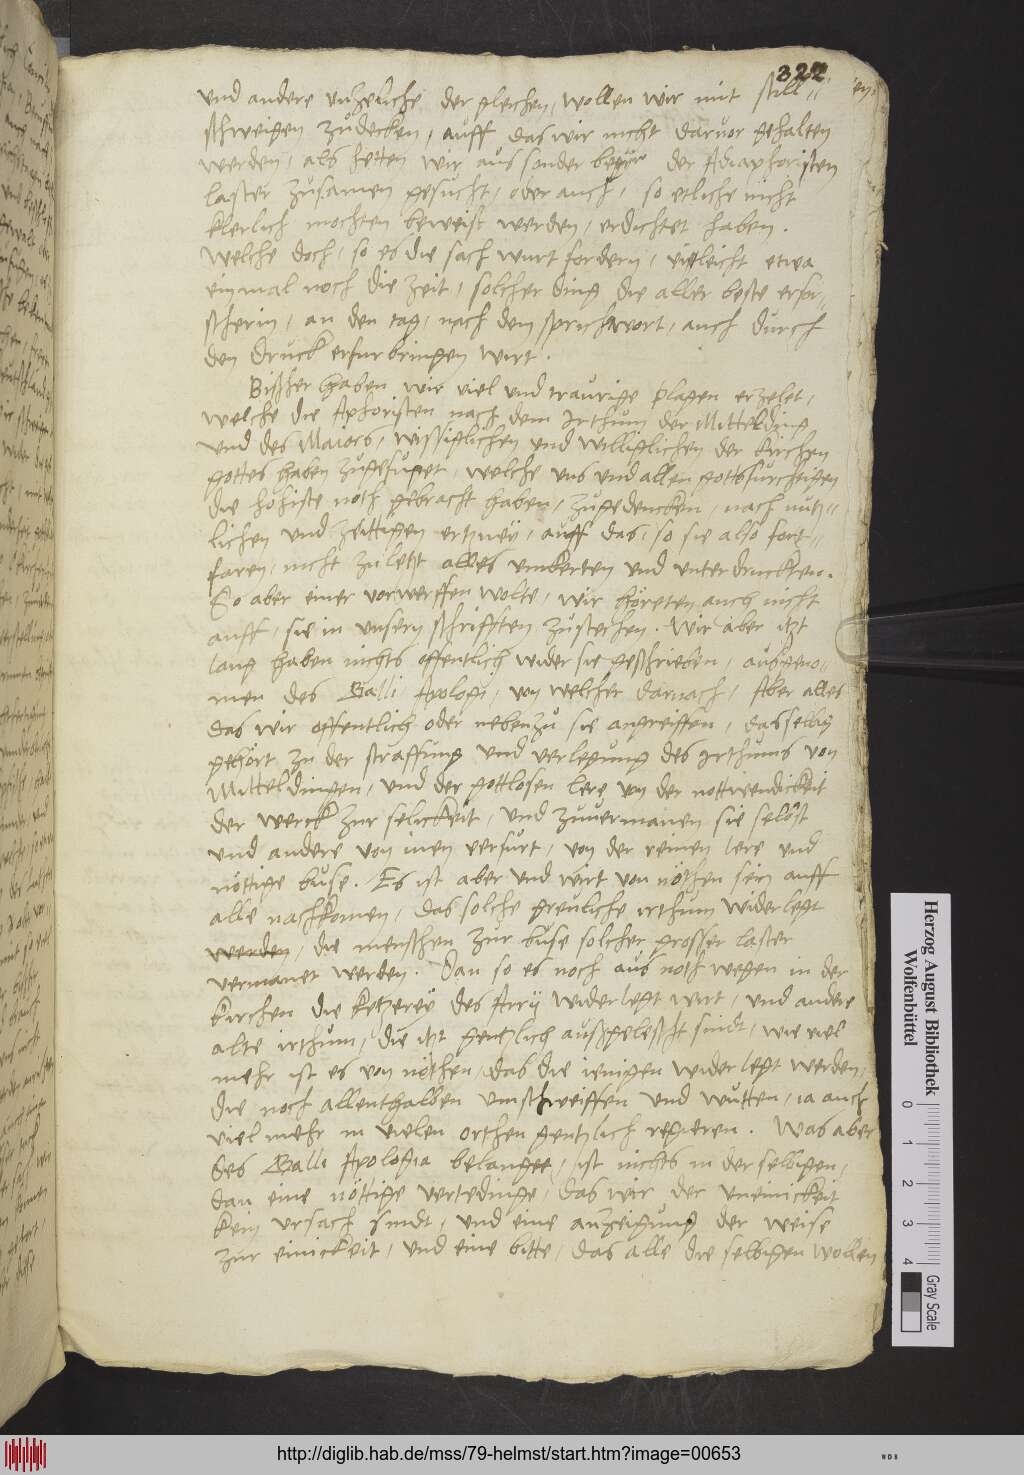 322
und andere unzeliche der gleichen, wollen wir mit still=
schweigen zudecken, auff das wir nicht darvor gehalten
werden, als hetten wir aus sonder begir der Adiaphoristen
laster zusamen gesucht, oder auch, so etliche nicht
klerlich mochten beweist werden, erdichtet haben.
Welche doch, so es die sach wurt fordern, vieleicht etwa
ein mal noch die zeit, solcher ding die aller beste erfor,
scherin, an den tag, nach dem sprichwort, auch durch
den druck erfur bringen wirt.
Bißher haben wir viel und traurige plagen erzelet,
welche die Aphoristen nach dem Irthum der Mittelding
und des Maiors, wissiglichen und williglichen der kirchen
gottes haben zugefuget, welche uns und allen gottsfurchtigen
die hohiste noth gebracht haben, zugedencken, nach nutz=
lichen und zeittigen ertzney, auff das, so sie also fort=
faren, nicht zu letzt alles umkerten und unterdruckten.
So aber einer vorwerffen wolte, wir höreten auch nicht
auff, sie in unsern schrifften zustechen. Wir aber itzt
lang haben nichts offentlich wider sie geschrieben, ausgeno=
men des Galli Apologi, von welcher darnach, Aber alles
das wir offentlich oder nebenzu sie angreiffen, dasselbig
gehört zu der straffung und verlegung des Irthums von
Mitteldingen, und der gottlosen lere von der nottwendickeit
der werck zur selickeit, und zuvermanen sie selbst
und andere von inen verfurt, von der reinen lere und
nöttige buse. Es ist aber und wirt von nöthen sein auff
alle nachkomen, das solche greuliche irthum widerlegt
werden, die menschen zur buse solcher grosser laster
vermanet werden. Dan so es noch aus noth wegen in der
kirchen die ketzerey des Arrij widerlegt wirt, und andere
alte irthum, die itzt gentzlich außgelescht sindt, wie viel
mehr ist es von nöthen, das die ienigen widerlegt werden,
die noch allenthalben umschweiffen und wütten, ia auch
viel mehr in vielen orthen gentzlich regieren. Was aber
des Galli Apologia belanget, ist nichts in der selbigen,
dan eine nöttige vertedinge, das wir der uneinickeit
kein ursach sindt, und eine anzeigung der weise
zur einickeit, und eine bitte, das alle die selbigen wollen
Herzog August Bibliothek
Wolfenbüttel
0 1 2 3 4
Gray Scale
http://diglib.hab.de/mss/79-helmst/start.htm?image=00653